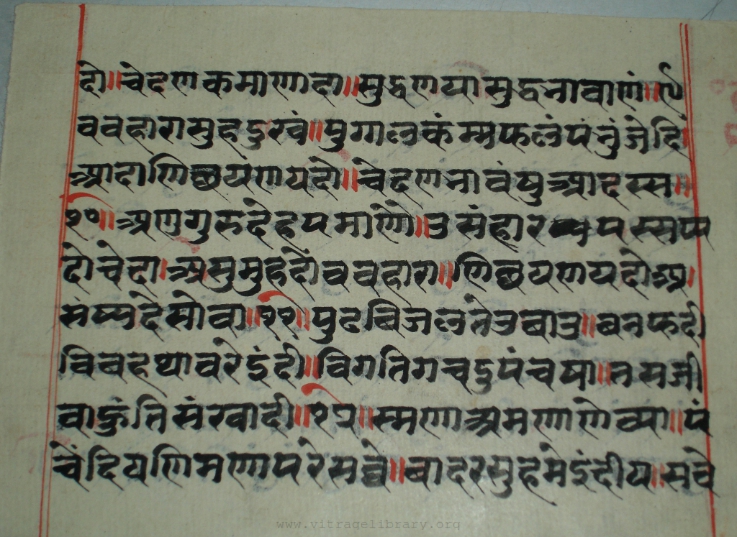 दो॥चेदणकमाणादा॥सुद्धणया सुद्धभावाणं॥९
ववहारासुहदुरकं॥पुगालकंम्मफलंपभुंजेदि
आदाणिच्छयणयदो॥चेदणभावंषुआदस्स॥
१०॥अणुगुरुदेहपमाणो॥उसंहारपस्सप्प
दोचेदा।असुमुहदोववहारा॥णिच्छयणयदोअ।
संष्पदेसोवा॥११॥पुढविजलतेउवाउ॥वनफदी
विवहथावरेइंदी॥विगतिगचदुपंचषा॥तसजी
वाहुंतिसंखादी॥१२॥स्मणाअमणाणेव्या॥पं
चेंदियणिमणापरेसव्वे॥बादरसुहमेइंदीय॥सवे
www.vitragelibrary.org